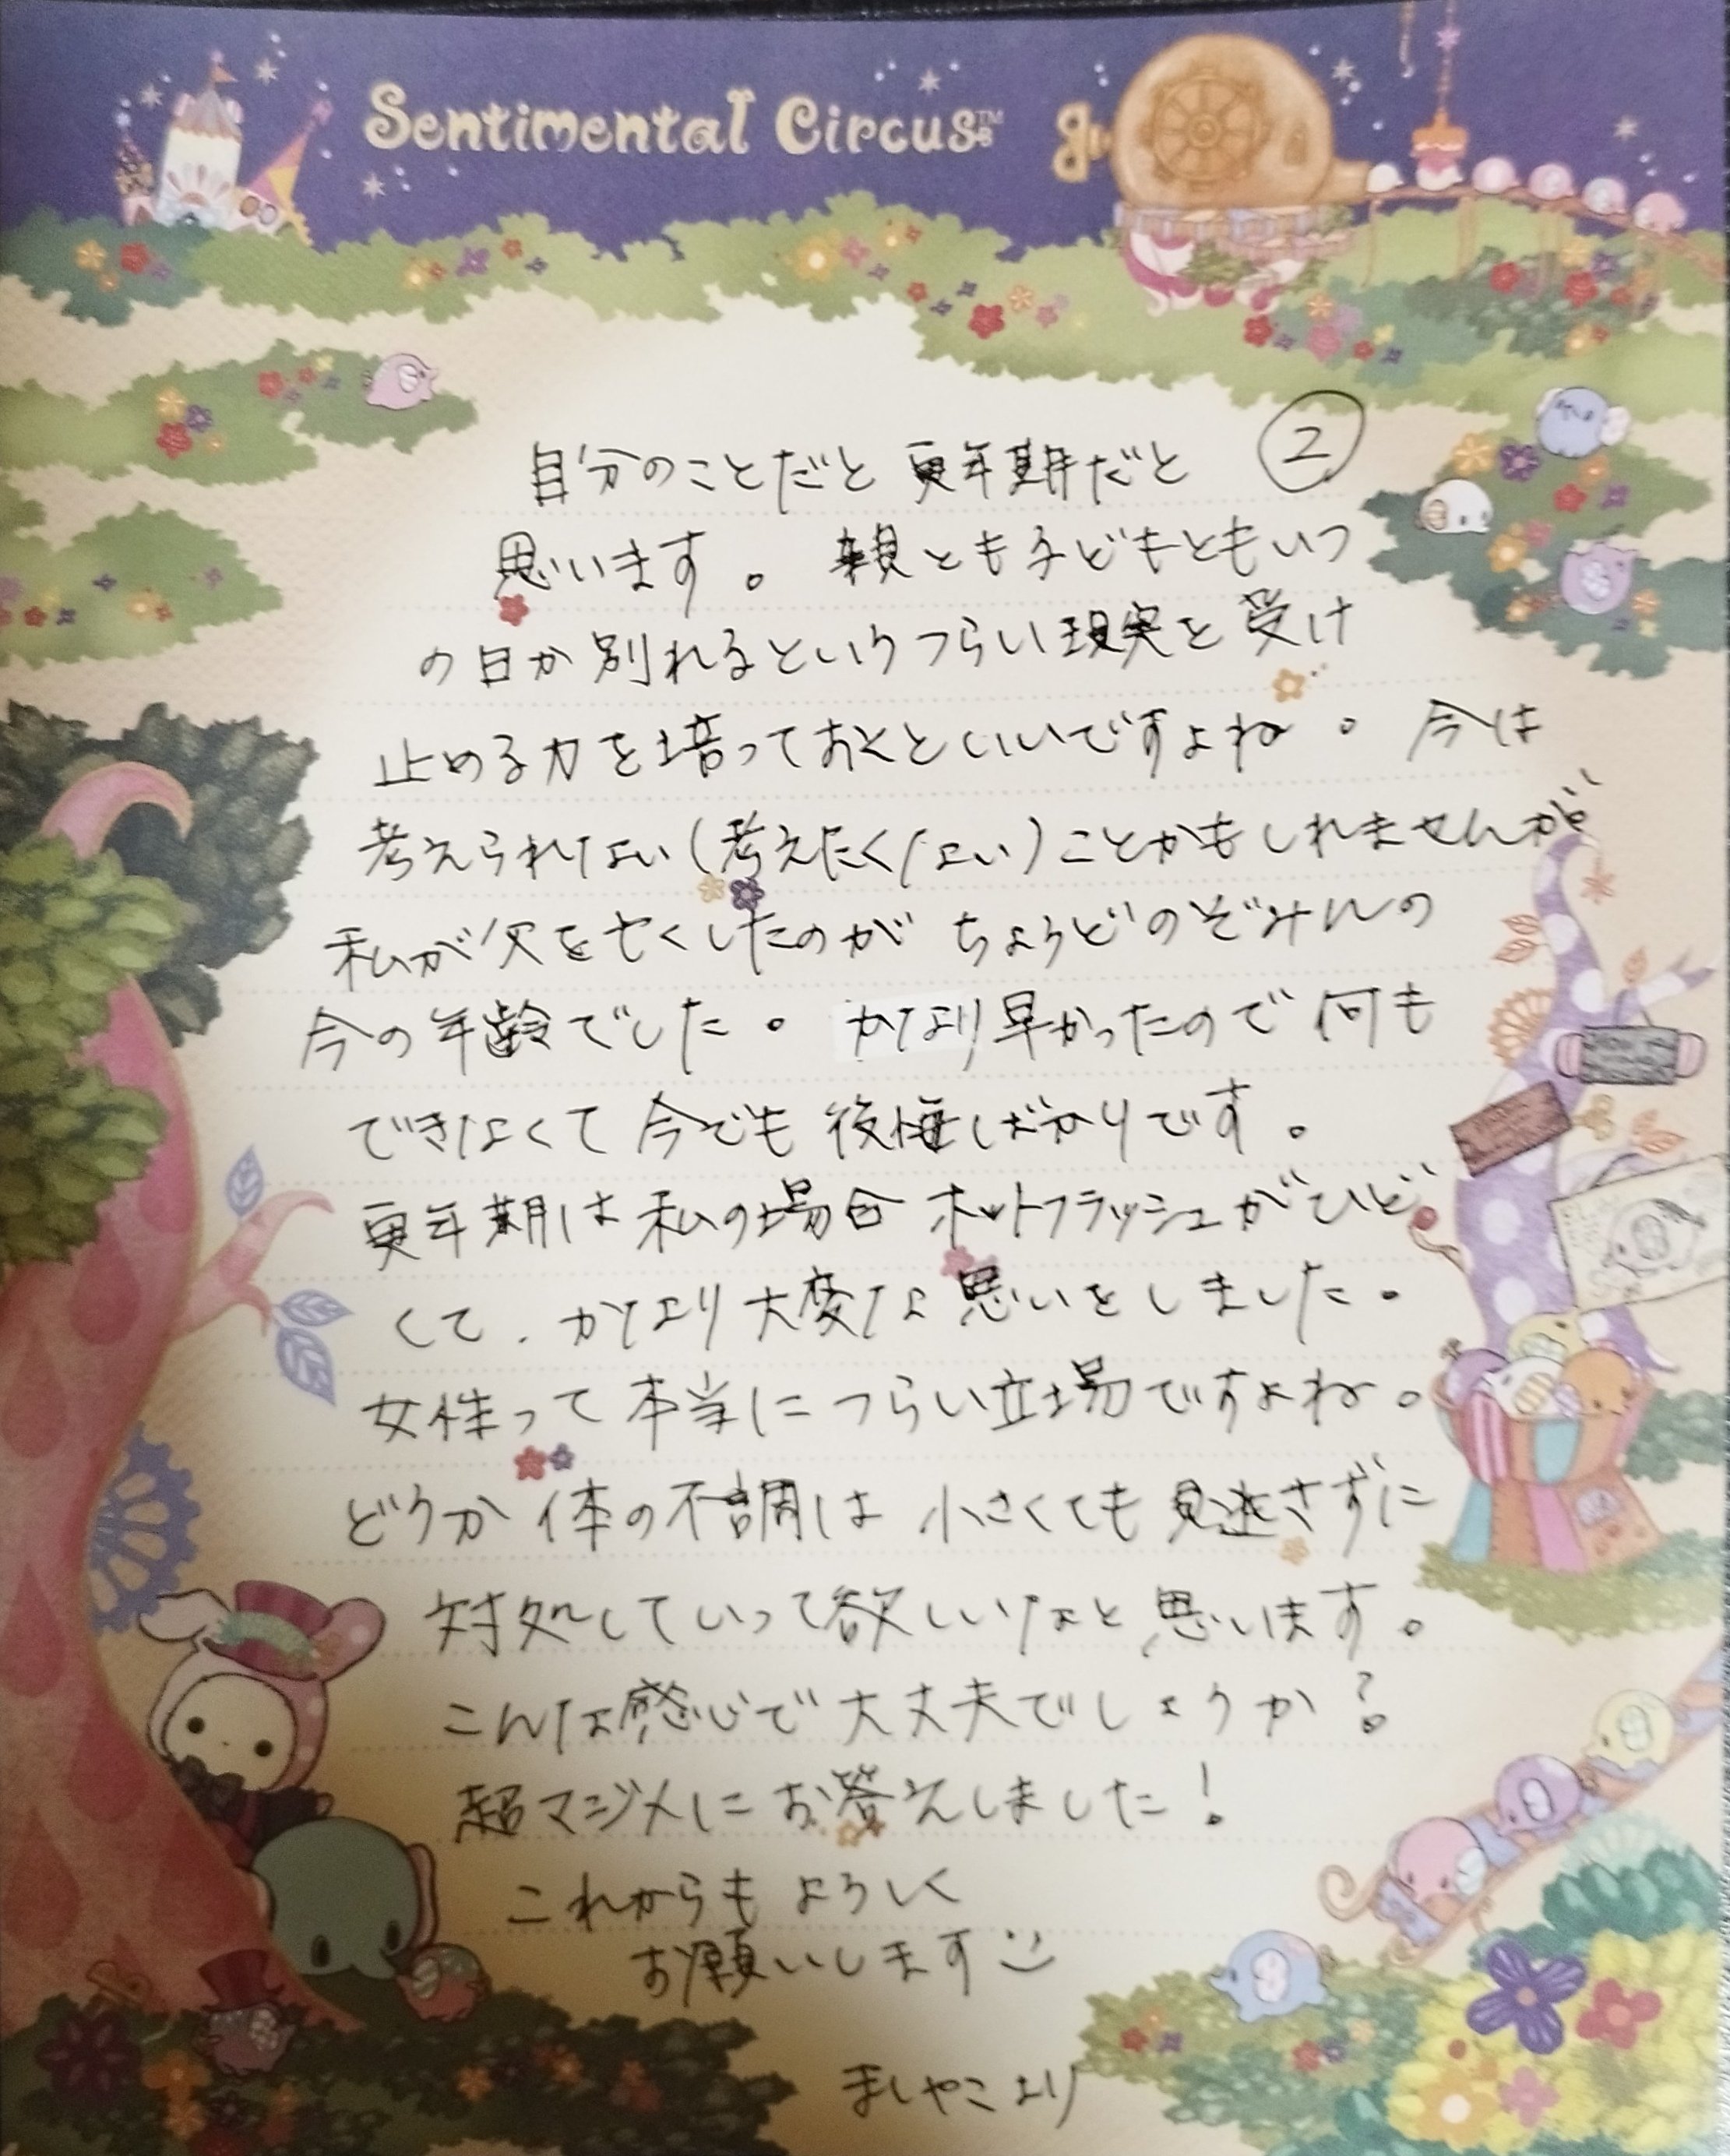 Sentimental Circus™
②
自分のことだと更年期だと
思います。親とも子どもともいつ
の日か別れるというつらい現実を受け
止める力を培っておくといいですよね。今は
考えられない(考えたくない)ことかもしれませんが
私が父を亡くしたのがちょうどのぞみんの
今の年齢でした。かなり早かったので何も
できなくて今でも後悔ばかりです。
更年期は私の場合ホットフラッシュがひど
くて、かなり大変な思いをしました。
女性って本当につらい立場ですよね。
どうか体の不調は小さくても見逃さずに
対処していって欲しいなと思います。
こんな感じで大丈夫でしょうか?
超マジメにお答えしました!
これからもよろしく
お願いします
ましゃこより